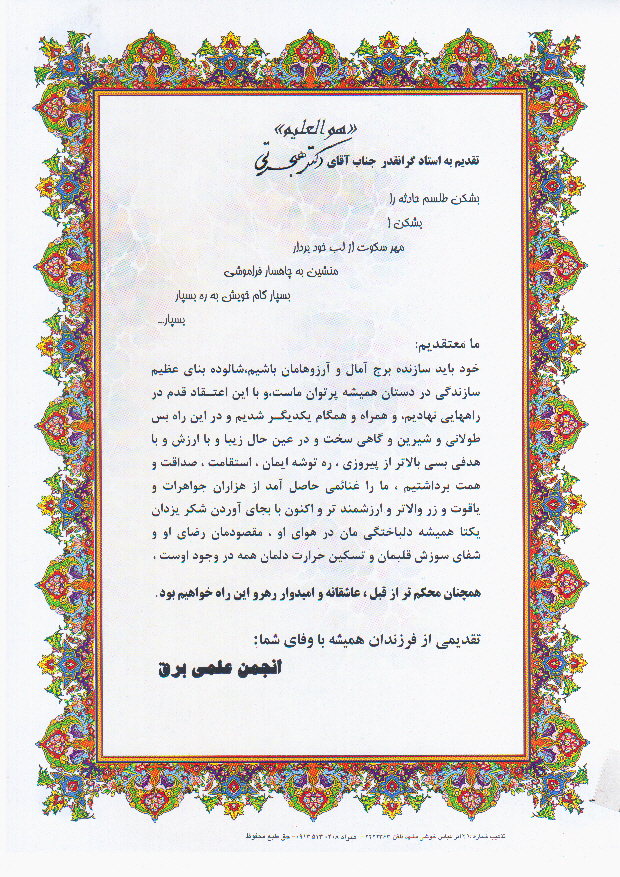 «هو العلیم»
تقدیم به استاد گرانقدر جناب آقای دکتر هجرتی
بشکن طلسم حادثه را
بشکن !
مهر سکوت از لب خود بردار
منشین به چاهسار فراموشی
بسپار گام خویش به ره بسپار
بسپار...
ما معتقدیم:
خود باید سازنده برج آمال و آرزوهامان باشیم،شالوده بنای عظیم
سازندگی در دستان همیشه پرتوان ماست،و با این اعتـقاد قدم در
راههایی نهادیم، و همراه و همگام یکدیگـر شدیم و در این راه بس
طولانی و شیرین و گاهی سخت و در عین حال زیبا و با ارزش و با
هدفی بسی بالاتر از پیروزی ، ره توشه ایمان ، استقامت ، صداقت و
همت برداشتیم ، ما را غنائمی حاصل آمد از هزاران جواهرات و
یاقوت و زر والاتر و ارزشمند تر و اکنون با بجای آوردن شکر یزدان
یکتا همیشه دلباختگی مان در هوای او ، مقصودمان رضای او و
شفای سوزش قلبمان و تسکین حرارت دلمان همه در وجود اوست ،
همچنان محکم تر از قبل ، عاشقانه و امیدوار رهرو این راه خواهیم بود.
تقدیمی از فرزندان همیشه با وفای شما:
انجمن علمی برق
تذهیب شماره اثر عباس خوشی تلفن همراه ۰۹۱۳ ۵۱۳ ۰۴۰۸ - حق طبع محفوظ